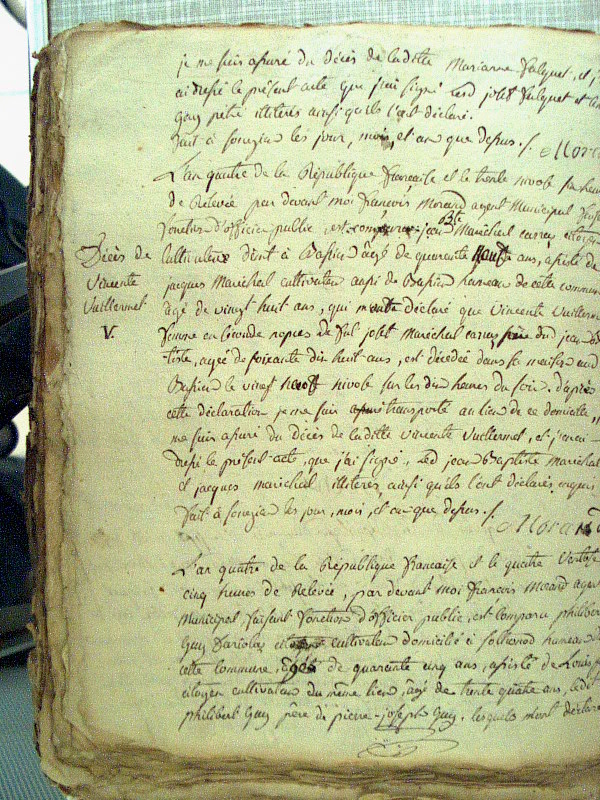 je me suis assuré du Décès de laditte Marianne Falquet, et j'
ai dressé le présent acte que j'ai signé led joset Falquet et
Guy prêtre illitérés ainsi qu'ils l'ont déclaré.
fait à les jour, mois, et an que depus. /. Mora
L'an quatre de la République française et le trente nivose
de Relevée par devant moi François Morard agent Municipal
fonction d'officier public, est comparu jean Bte Maréchal
Cultivateur à âgé de quarante neuf ans, assisté de
jacques Maréchal cultivateur aussi de hameau de cette commune
âgé de vingt huit ans, qui m'ont déclaré que Vincente Vuillermet
Décès de
Vincente
Vuillermet
V.
femme en séconde nopces de joset Maréchal dud jean
tiste, agée de soixante dix huit ans, est décédée dans sa maison aud
le vingt neuf nivose sur les dix heures du soir. D'après
cette déclaration je me suis transporté au lieu de ce domicile,
me suis assuré du Décès de laditte Vincente Vuillermet, et j'en ai
dressé le présent acte, que j'ai signé, led jean Baptiste Maréchal
et jacques maréchal illitérés ainsi qu'ils l'ont déclaré
fait à les jour, mois, et an que depus. /.
Morard
L'an quatre de la République francaise et le quatre Ventose
cinq heures de Relevée, par devant moi François Morard agent
Municipal faisant fonction d'officier public, est comparu philibert
Guy cultivateur domicilié à hameau de
cette commune, âgé de quarante cinq ans, assisté de Louis
citoyen cultivateur du même lieu, âgé de trente quatre ans, ledit
philibert Guy père de pierre-joseph Guy, lesquels m'ont déclaré